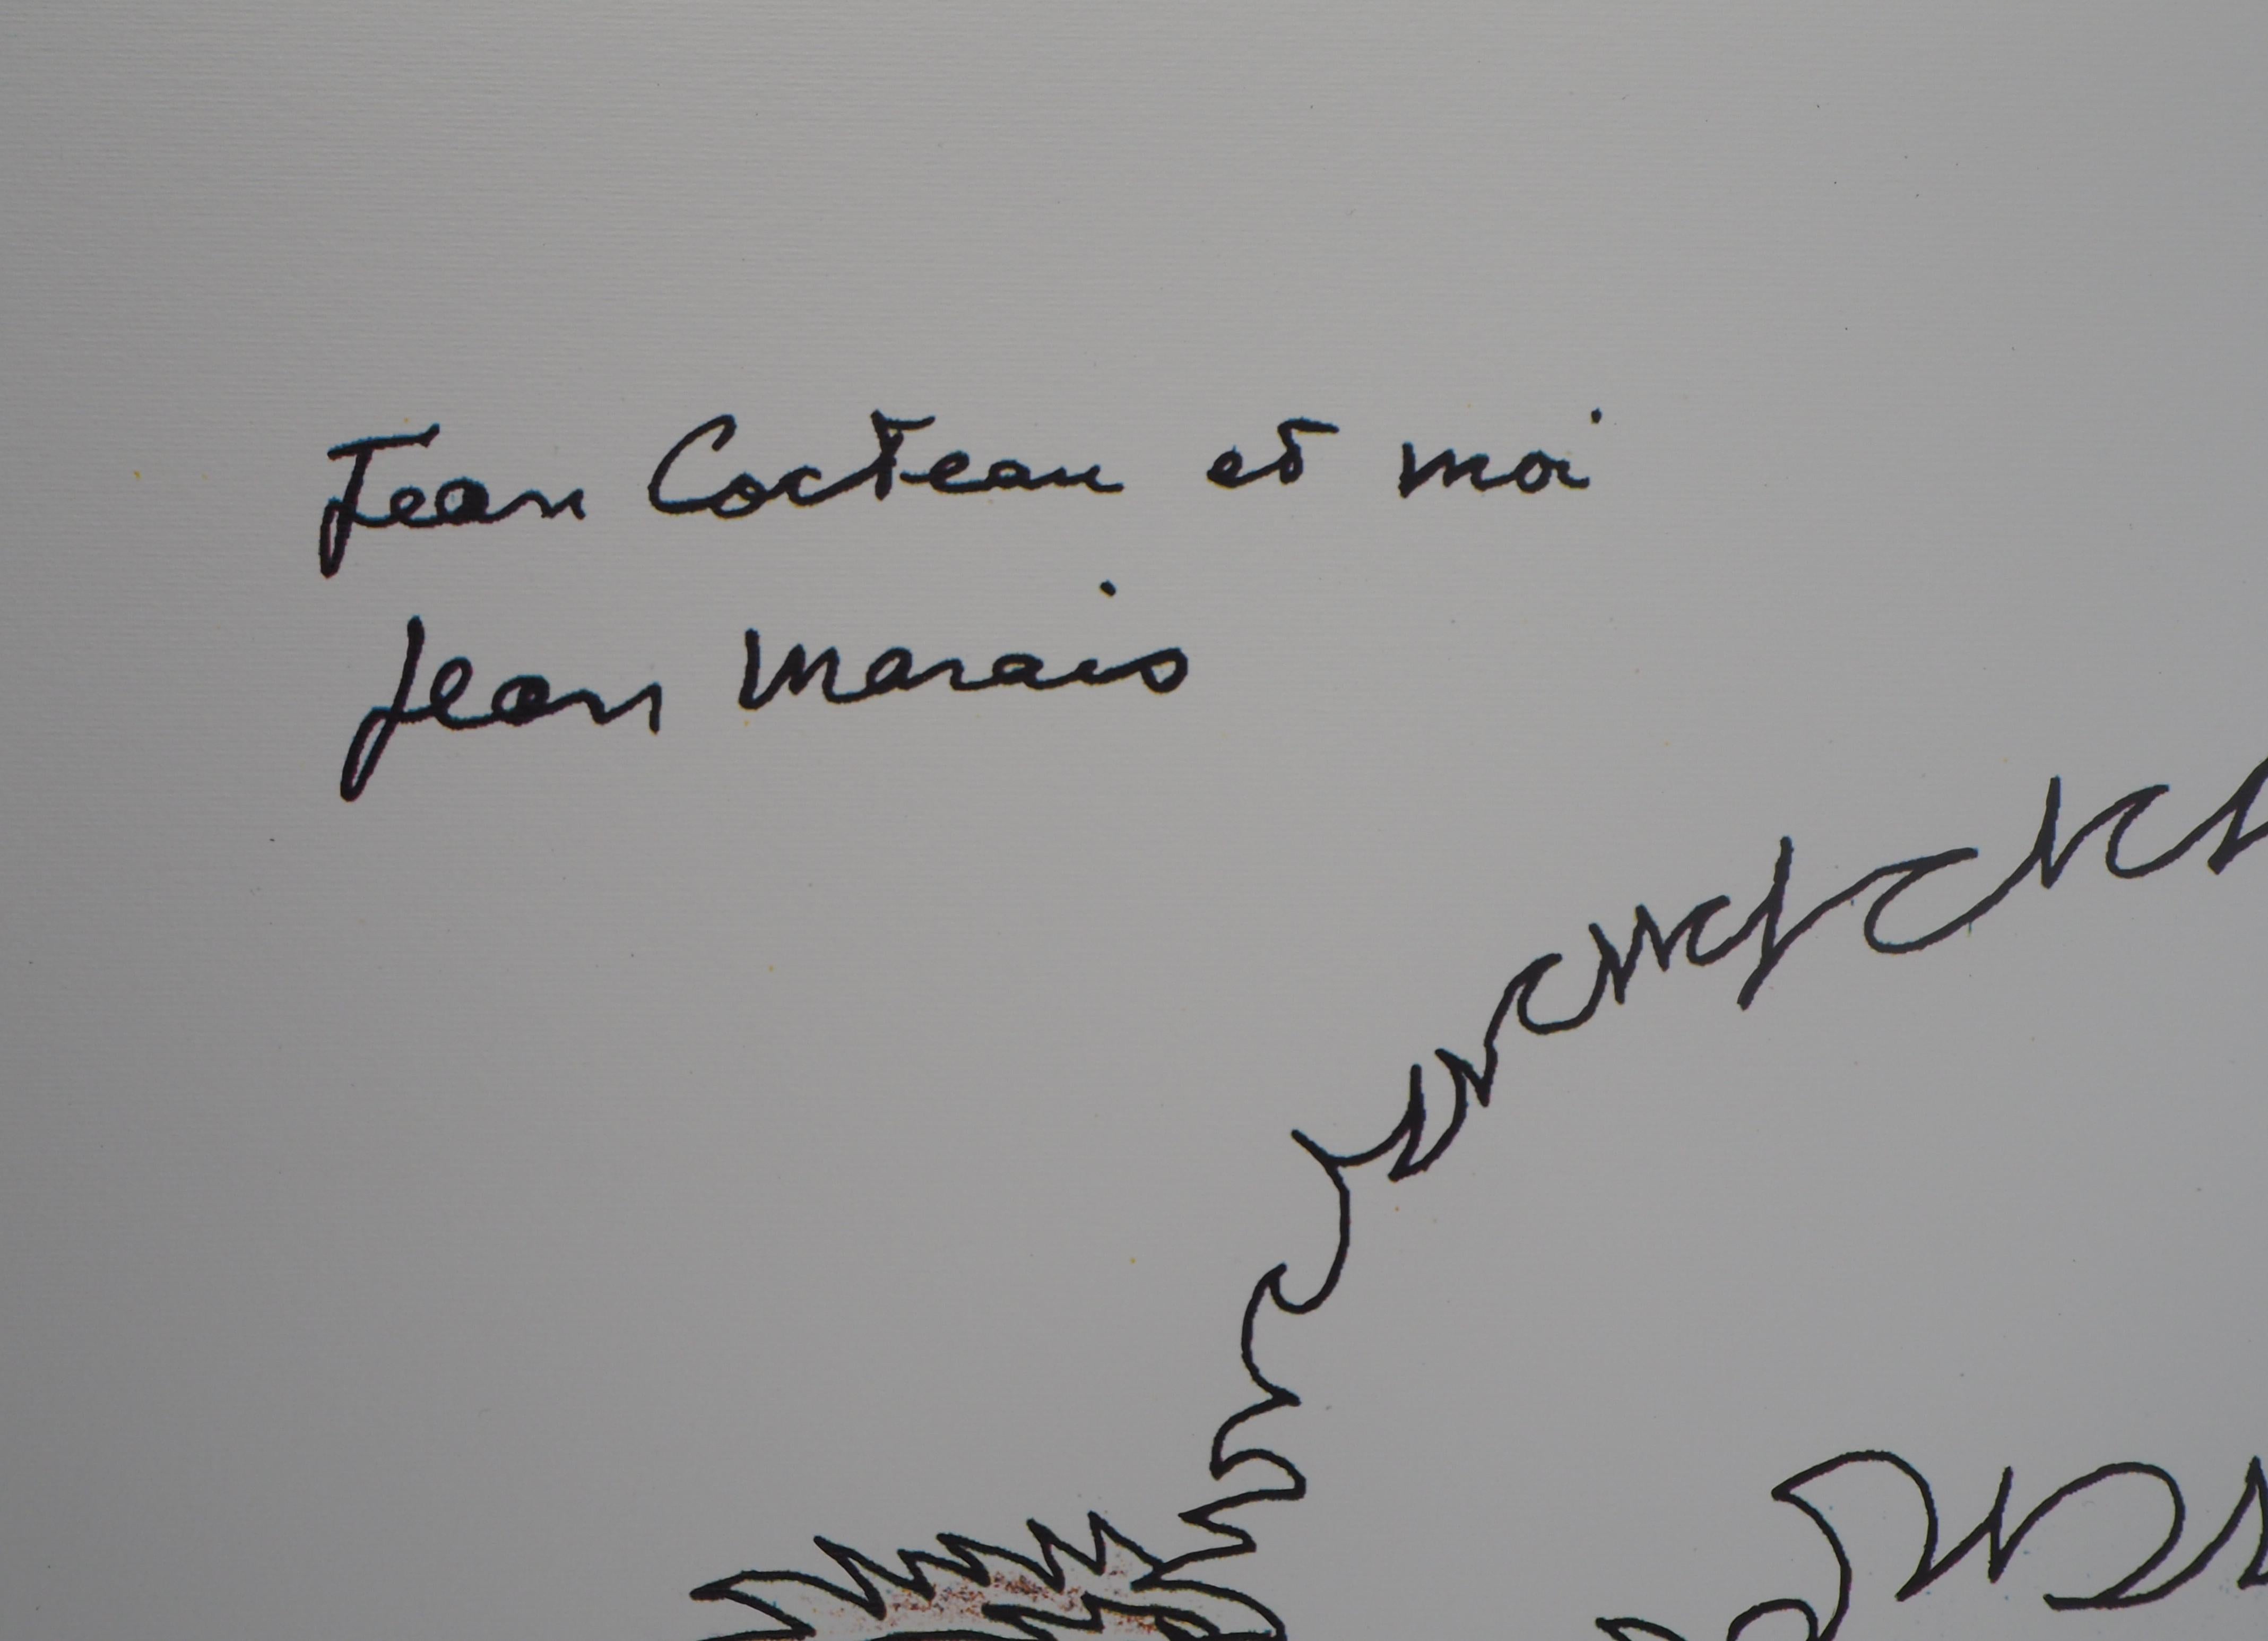 Jean Cocteau et moi
Jean Marais